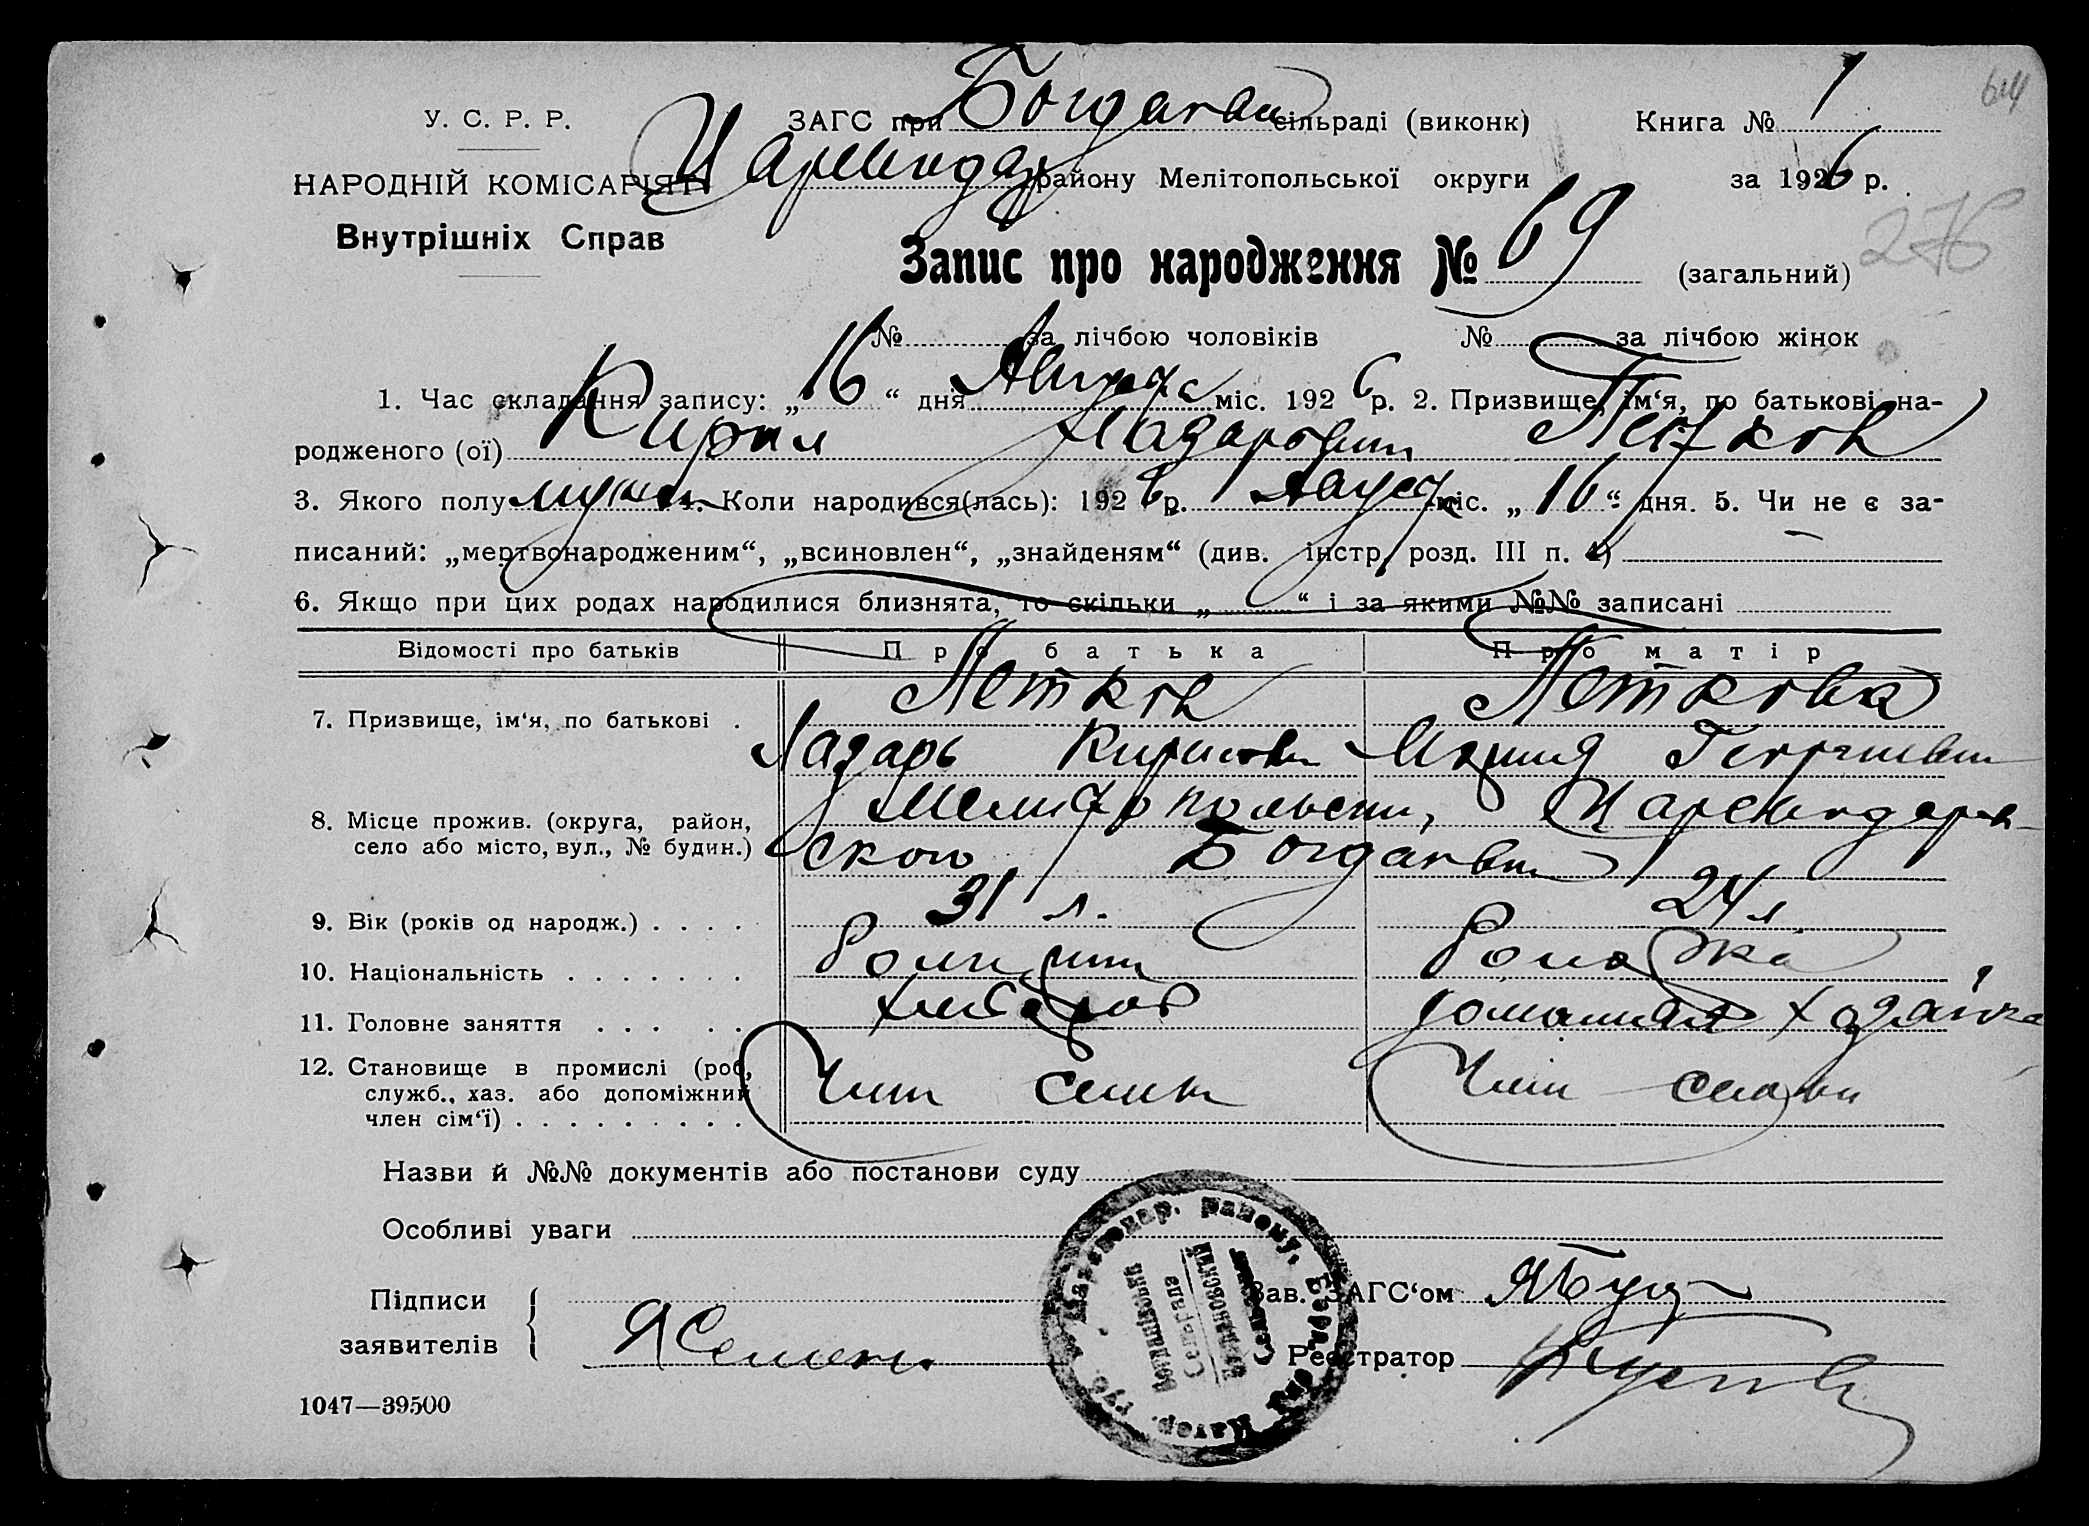 У. С. Р. Р. ЗАГС при Богданови сільраді (виконк) Книга № 1 614
НАРОДНІЙ КОМІСАРІЯТ Цареводар району Мелітопольської округи за 1926 р.
Внутрішніх Справ 276
Запис про народження № 69 (загальний)
№ за лічбою чоловіків № за лічбою жінок
1. Час складання запису: „16“ дня Августа міс. 1926 р. 2. Призвище, ім‘я, по батькові на-
родженого (ої) Кирил Лазарович Петков
3. Якого полу мужск 4. Коли народився(лась): 1926 р. Август міс. „16“ дня. 5. Чи не є за-
писаний: „мертвонародженим“, „всиновлен“, „знайденям“ (див. інстр, розд. III п. 4)
6. Якщо при цих родах народилися близнята, то скільки „ “ і за якими №№ записані
Відомості про батьків Про батька Про матір
7. Призвище, ім‘я, по батькові . Петков Петкова
Лазарь Кирилови Георгиевн
8. Місце прожив. (округа, район, Мелитопольски, Цареводаров-
село або місто, вул., № будин.) ского Богдановки
9. Вік (років од народж.) . . . . 31 л. 24 л
10. Національність . . . . . . .
11. Головне заняття . . . . . хлебороб домашная хозайка
12. Становище в промислі (роб,
служб., хаз. або допоміжний Член семьи Член семьи
член сім‘ї) . . . . . . . . .
Назви й №№ документів або постанови суду
Особливі уваги
Підписи Зав. ЗАГС‘ом
заявителів Реєстратор
1047—39500